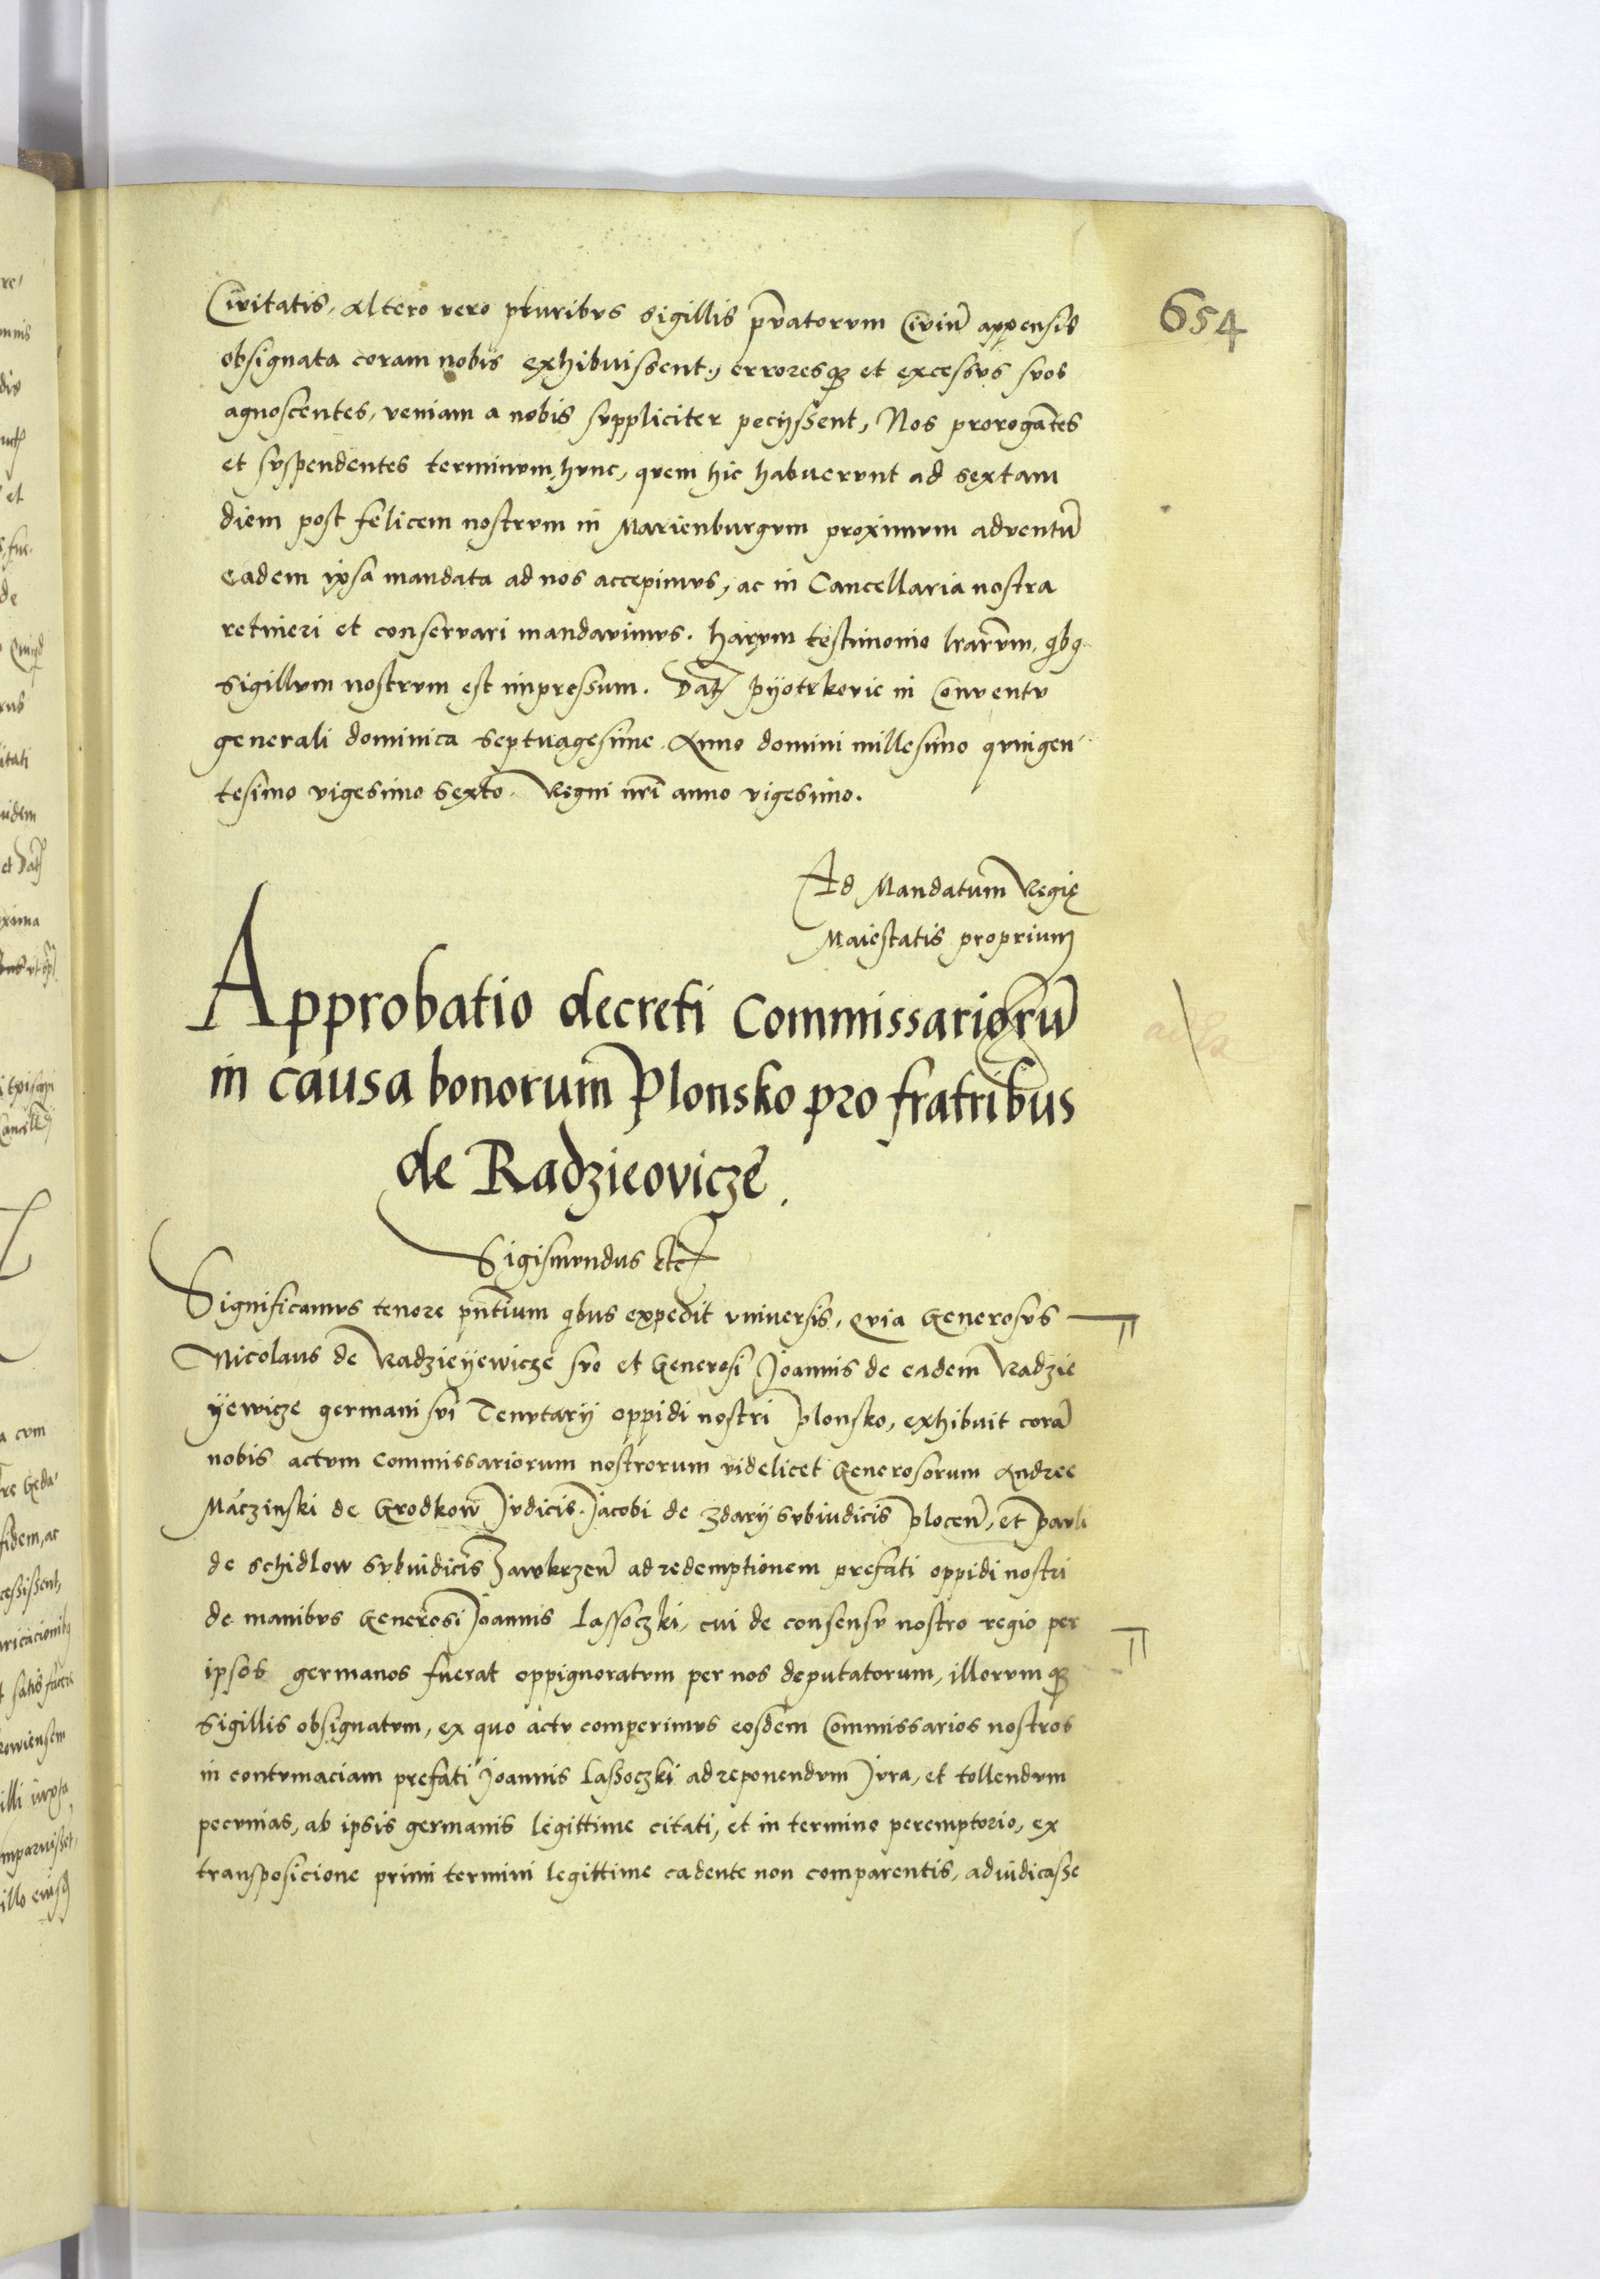 654
Civitatis, Altero vero pluribvs sigillis pͫvatorvm Civiũ appensis
obsignata coram nobis exhibuissent, erroresqꝫ et excessvs svos
agnoscentes, veniam a nobis svppliciter pecÿssent, Nos prorogãtes
et svspendentes terminvm hvnc, qvem hic habvervnt ad sextam
diem post felicem nostrvm in Marienburgvm proximvm adventũ
Eadem ipsa mandata ad nos accepimvs, ac in Cancellaria nostra
retineri et conservari mandavimvs. Harvm testimonio lrarvm, qibq
sigillvm nostrvm est impressum. Datꝫ Pÿotrkovie in Conventv
generali dominica Septvagesime Anno domini millesimo qvingen
tesimo vigesimo sexto. Regni nrĩ anno vigesimo.
Ad Mandatum Regię
Maiestatis proprium
Approbatio decreti Commissariorũ
in causa bonorum Plonsko pro fratribus
de Radzieovicze.
Sigismvndus etc
Significamvs tenore pñtium qibus expedit vniversis, Qvia Generosvs
Nicolaus de Radzieÿewicze svo et Generosi Joannis de eadem Radzie
ÿewicze germani svi Tenvtarÿ oppidi nostri Plonsko, exhibvit corã
nobis actvm Commissariorum nostrorum videlicet Generosorum Andree
Maczinski de Grodkow Jvdicis. Jacobi de Zdarÿ Svbiudicis Plocen̄, et Pavli
de Schidlow Svbiudicis Zawkrzen̄ ad redemptionem prefati oppidi nostri
de manibvs Generosi Joannis Lassoczki, cui de consensv nostro regio per
ipsos germanos fuerat oppignoratvm per nos deputatorum, illorvmqꝫ
sigillis obsignatvm, ex quo actv comperimvs eosdem Commissarios nostros
in contvmaciam prefati Joannis Lassoczki ad reponendvm Jvra, et tollendvm
pecvnias, ab ipsis germanis legittime citati, et in termino peremptorio, ex
transposicione primi termini legittime cadente non comparentis, adiudicasse